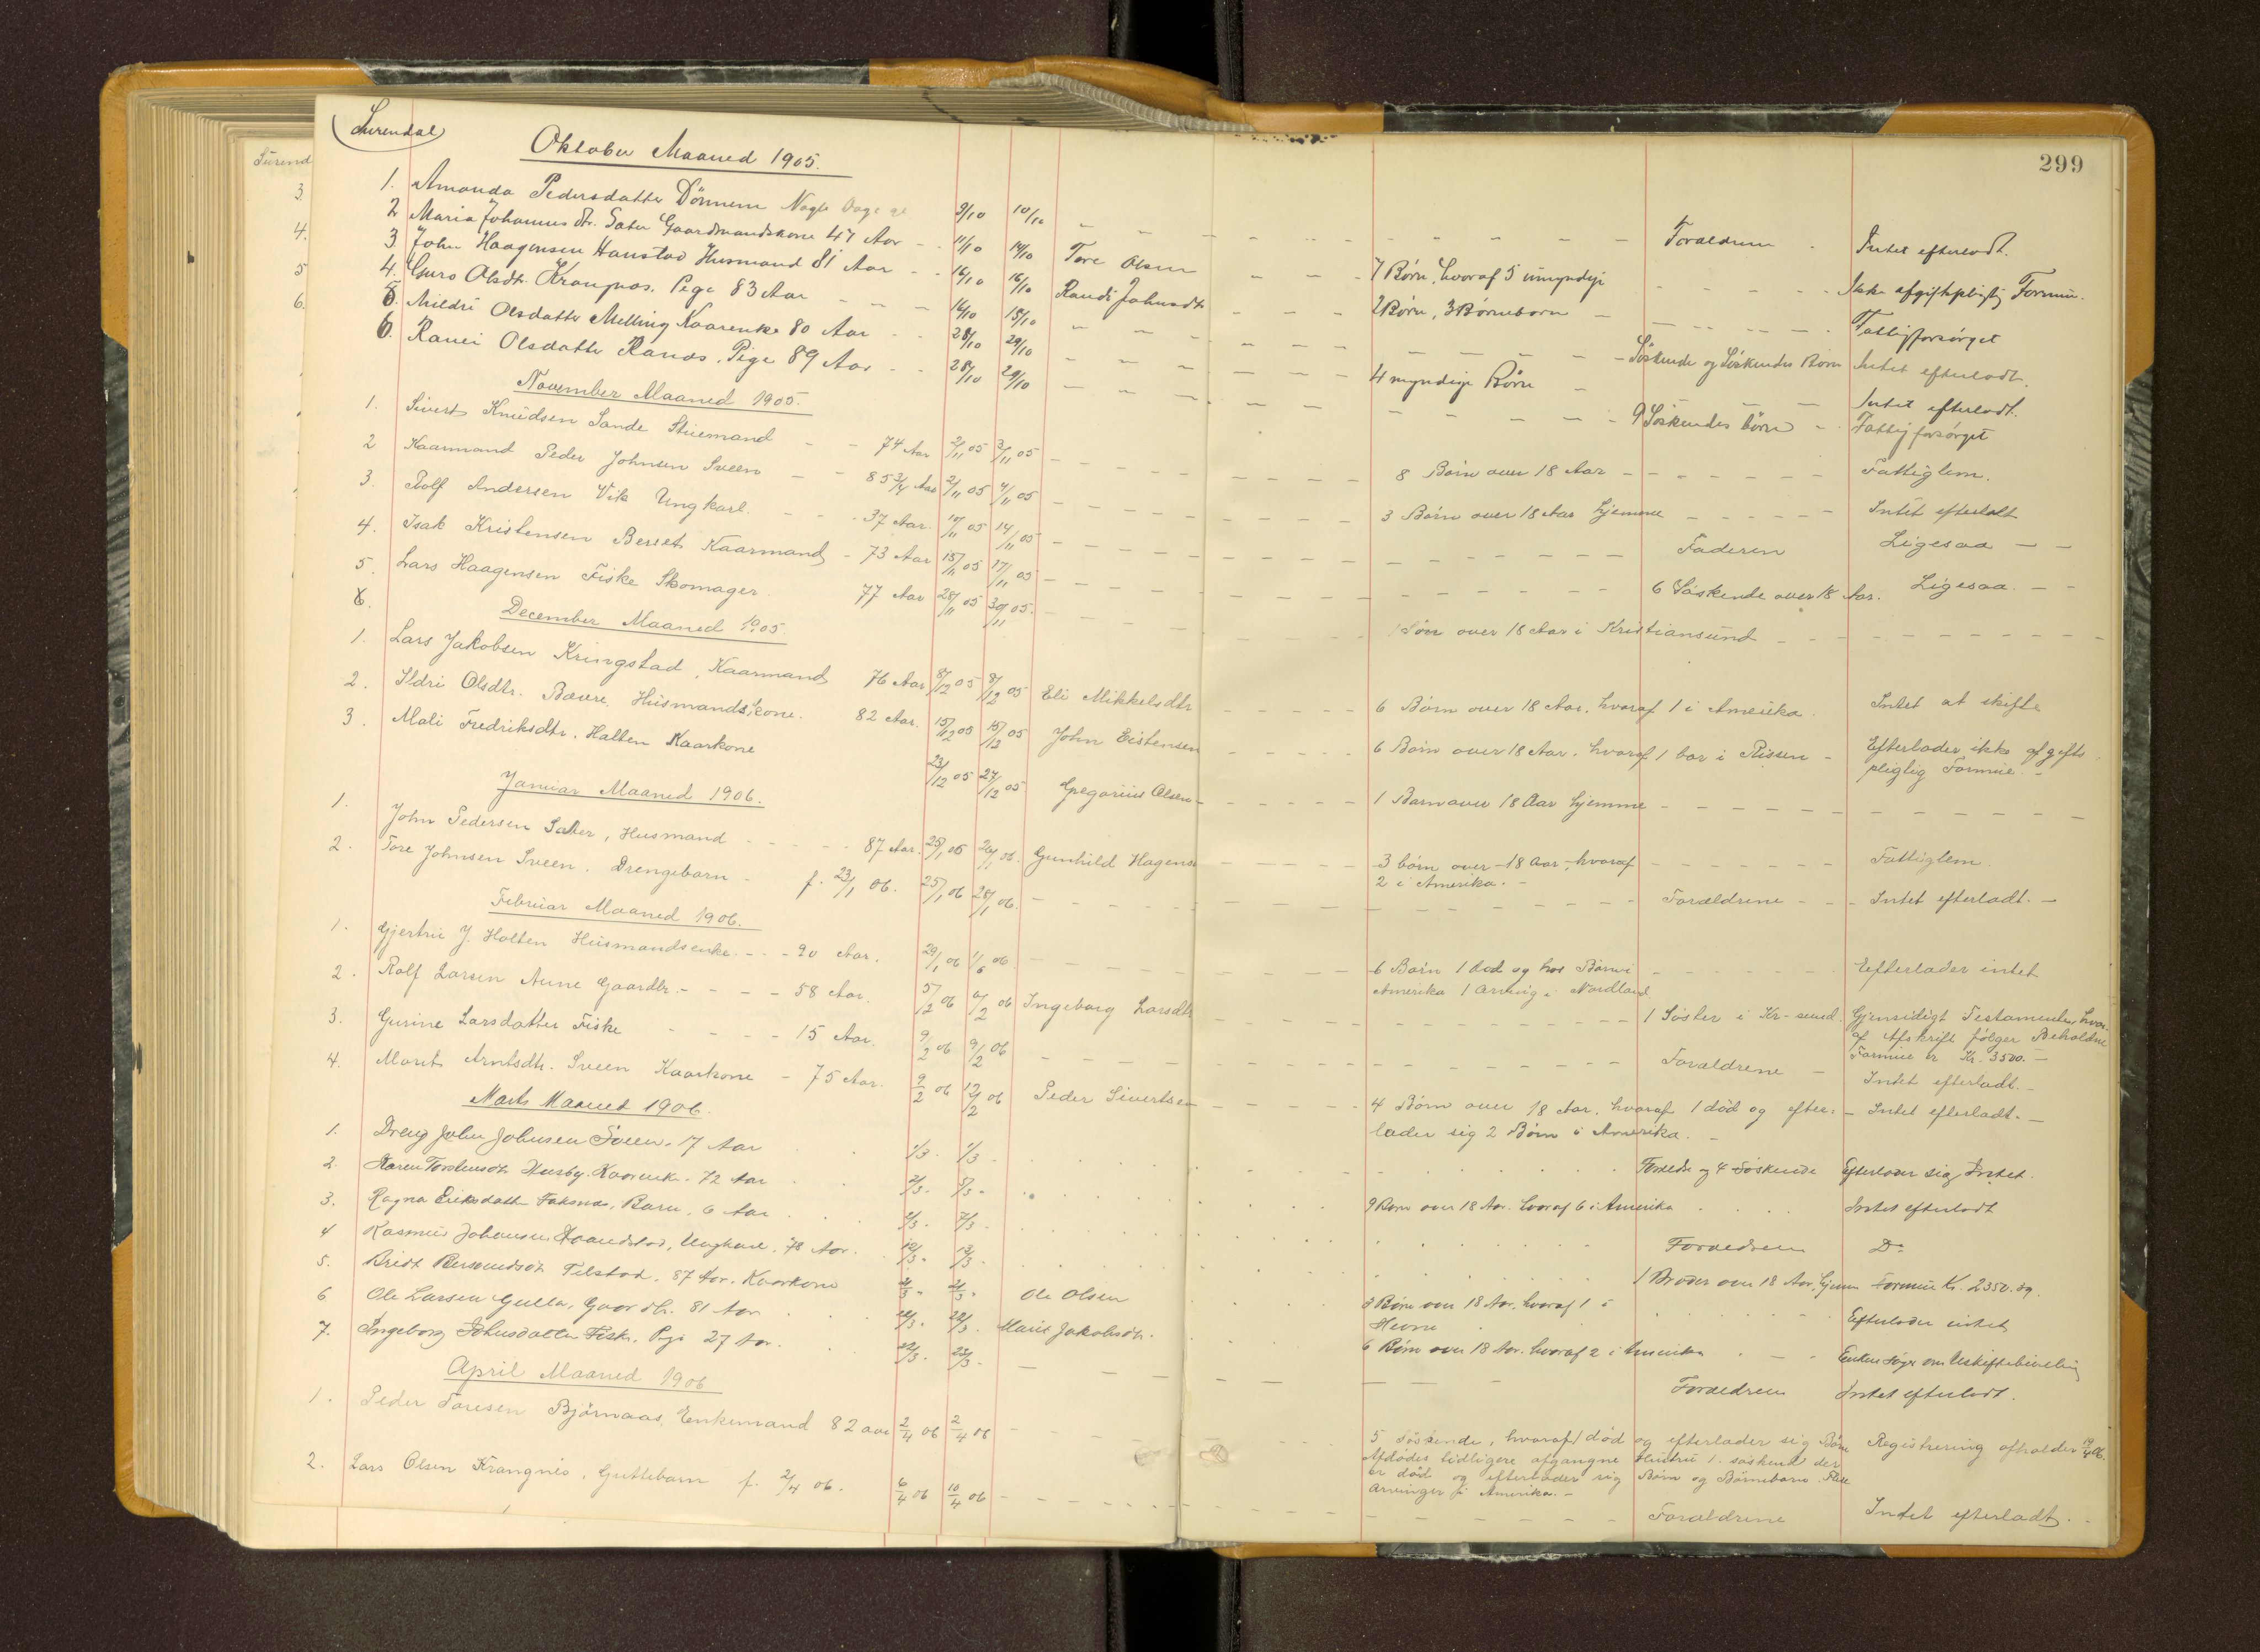 299
Surend
3.
4.
5
6.
Surendal
Oktober Maaned 1905.
1. Amanda Pedersdatter Dönnem Nogle Dage gl 9/10 10/10 Forældrene Intet efterladt.
2 Maria Johannesdtr. Sæter Gaardmandskone 47 Aar 11/10 14/10 Tore Olsen 7 Børn, hvoraf 5 umyndige Ikke afgiftspligtig Formue.
3 John Haagensen Hanstad Husmand 81 Aar 16/10 16/10 Randi Johnsdtr 2 Børn, 3 Børnebørn Fattigforsørget
4. Guro Olsdtr. Krangnæs, Pige 83 Aar 16/10 15/10 Söskende og Söskendes Børn Intet efterladt.
5. Mildri Olsdatter Melling Kaarenke 80 Aar 28/10 29/10 4 myndige Børn Intet efterladt.
6. Ranei Olsdatter Ranæs, Pige 89 Aar 28/10 29/10 9 Söskendes børn Fattigforsørget
November Maaned 1905.
1. Sivert Knudsen Sande Stuemand 74 Aar 2/11 05 3/11 05 8 Børn over 18 Aar Fattiglem.
2 Kaarmand Peder Johnsen Sveen 85 3/4 Aar 2/11 05 4/11 05 3 Børn over 18 Aar hjemme Intet efterladt
3. Rolf Andersen Vik Ungkarl. 37 Aar. 10/11 05 14/11 05 Faderen Ligesaa
4. Isak Kristensen Berset Kaarmand 73 Aar 15/11 05 17/11 05 6 Söskende over 18 Aar. Ligesaa.
5. Lars Haagensen Fiske Skomager. 77 Aar 28/11 05 30/11 05. 1 Søn over 18 Aar i Kristiansund
6.
December Maaned 1905.
1. Lars Jakobsen Kringstad, Kaarmand 76 Aar 8/12 05 9/12 05 Eli Mikkelsdtr 6 Børn over 18 Aar, hvoraf 1 i Amerika. Intet at skifte
2. Ildri Olsdtr. Bævre, Husmandskone. 82 Aar. 15/12 05 15/12 05 John Eistensen 6 Børn over 18 Aar, hvoraf 1 bor i Rissen Efterlader ikke afgifts
pligtig Formue.
3. Mali Fredriksdtr. Halten Kaarkone 23/12 05 27/12 05 Gregorius Olsen 1 Barn over 18 Aar hjemme
Januar Maaned 1906.
1. John Pedersen Sæter, Husmand 87 Aar. 25/1 06 26/1 06. Gunhild Hagens 3 børn over 18 Aar, hvoraf Fattiglem
2 i Amerika.
2. Tore Johnsen Sveen. Drengebarn f. 23/1 06. 25/1 06 28/1 06. Forældrene Intet efterladt.
Februar Maaned 1906.
1. Gjertru J. Holten Husmandsenke. 90 Aar. 29/1 06 1/6 06 6 Børn 1 død og har Børn i Efterlader intet
Amerika 1 Arving i Nordland
2. Rolf Larsen Aune Gaardbr. 58 Aar. 5/2 06 6/2 06 Ingeborg Larsdtr 1 Søster i Kr-sund. Gjensidigt Testamente, hvor-
af Afskrift følger Beholdne
Formue er Kr. 3500.
3. Gurine Larsdatter Fiske 15 Aar. 9/2 06 9/2 06 Forældrene Intet efterladt.
4. Marit Arntsdtr. Sveen Kaarkone 75 Aar. 9/2 06 12/2 06 Peder Sivertsen 4 Børn over 18 Aar, hvoraf 1 død og efter: Intet efterladt.
lader sig 2 Børn i Amerika.
Marts Maaned 1906.
1. Dreng John Johnsen Sveen. 17 Aar 1/3. 1/3. Forældre og 4 Söskende Efterlader sig Intet.
2. Karen Torstensdtr Husby. Kaarenke. 72 Aar 2/3. 5/3. 9 Børn over 18 Aar. hvoraf 6 i Amerika Intet efterladt
3. Ragna Eriksdatter Faksnæs, Barn, 6 Aar 2/3. 7/3. Forældrene Do
4 Rasmus Johansen Haandstad, Ungkarl, 78 Aar. 12/3. 13/3. 1 Broder over 18 Aar, hjemm Formue Kr. 2350.39.
5. Tilstad. 87 Aar. Kaarkone 21/3. 21/3. Ole Olsen 3 Børn over 18 Aar. hvoraf 1 i Efterlader intet
Hevne
6 Ole Larsen Gulla, Gaardbr. 81 Aar 22/3. 22/3. Marit Jakobsdtr. 6 Børn over 18 Aar. hvoraf 2 i Amerika Enken søger om Uskiftebevilling
7. Ingeborg Johnsdatter Fiske, Pige 27 Aar. 22/3. 23/3. Forældrene Intet efterladt.
April Maaned 1906
1. Peder Toresen Bjørnaas, Enkemand 82 aar 2/4 06 2/4 06 5 Söskende, hvoraf 1 død og efterlader sig Børn Registrering afholdes 19/4 06.
Afdødes tidligere afgangne Hustru 1. søskend der
er død og efterlader sig Børn og Børnebørn. Flere
Arvinger fra Amerika.
2. Lars Olsen Krangnes, Guttebarn f. 2/4 06. 6/4 06 10/4 06 Forældrene Intet efterladt.